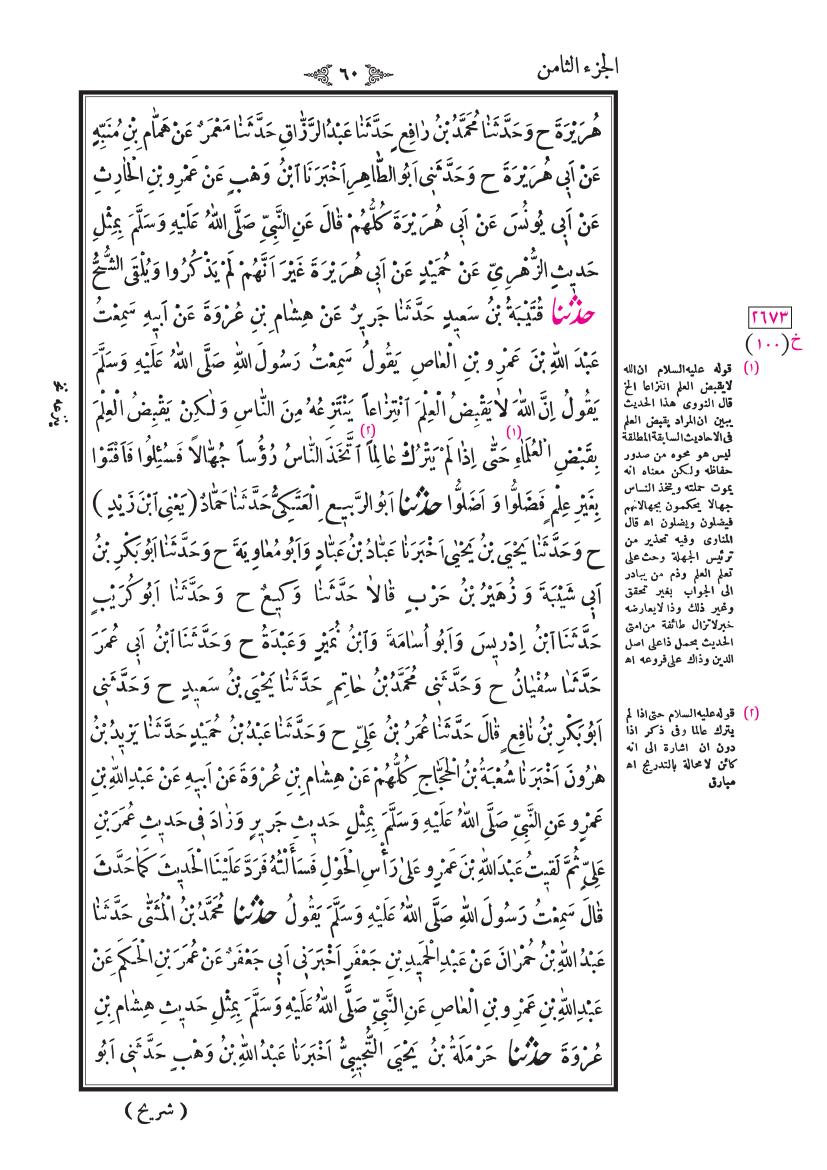 الجزء الثامن
٦٠
هُرَيْرَةَ ح وَحَدَّثَنَا مُحَمَّدُ بْنُ رَافِعٍ حَدَّثَنَا عَبْدُ الرَّزَّاقِ حَدَّثَنَا مَعْمَرٌ عَنْ هَمَّامِ بْنِ مُنَبِّهٍ
عَنْ أَبِي هُرَيْرَةَ ح وَحَدَّثَنِي أَبُو الطَّاهِرِ أَخْبَرَنَا ابْنُ وَهْبٍ عَنْ عَمْرِو بْنِ الْحَارِثِ
عَنْ أَبِي يُونُسَ عَنْ أَبِي هُرَيْرَةَ كُلُّهُمْ قَالَ عَنِ النَّبِيِّ صَلَّى اللهُ عَلَيْهِ وَسَلَّمَ بِمِثْلِ
حَدِيثِ الزُّهْرِيِّ عَنْ حُمَيْدٍ عَنْ أَبِي هُرَيْرَةَ غَيْرَ أَنَّهُمْ لَمْ يَذْكُرُوا وَيُلْقَى الشُّحُّ
حدثنا قُتَيْبَةُ بْنُ سَعِيدٍ حَدَّثَنَا جَرِيرٌ عَنْ هِشَامِ بْنِ عُرْوَةَ عَنْ أَبِيهِ سَمِعْتُ
عَبْدَ اللهِ بْنَ عَمْرِو بْنِ الْعَاصِ يَقُولُ سَمِعْتُ رَسُولَ اللهِ صَلَّى اللهُ عَلَيْهِ وَسَلَّمَ
يَقُولُ إِنَّ اللهَ لَا يَقْبِضُ الْعِلْمَ انْتِزَاعاً يَنْتَزِعُهُ مِنَ النَّاسِ وَلَكِنْ يَقْبِضُ الْعِلْمَ
بِقَبْضِ الْعُلَمَاءِ (١) حَتَّى إِذَا لَمْ يَتْرُكْ عَالِماً (٢) اتَّخَذَ النَّاسُ رُؤُساً جُهَّالاً فَسُئِلُوا فَأَفْتَوْا
بِغَيْرِ عِلْمٍ فَضَلُّوا وَأَضَلُّوا حدثنا أَبُو الرَّبِيعِ الْعَتَكِيُّ حَدَّثَنَا حَمَّادٌ (يَعْنِي ابْنَ زَيْدٍ)
ح وَحَدَّثَنَا يَحْيَى بْنُ يَحْيَى أَخْبَرَنَا عَبَّادُ بْنُ عَبَّادٍ وَأَبُو مُعَاوِيَةَ ح وَحَدَّثَنَا أَبُو بَكْرِ بْنُ
أَبِي شَيْبَةَ وَزُهَيْرُ بْنُ حَرْبٍ قَالَا حَدَّثَنَا وَكِيعٌ ح وَحَدَّثَنَا أَبُو كُرَيْبٍ
حَدَّثَنَا ابْنُ إِدْرِيسَ وَأَبُو أُسَامَةَ وَابْنُ نُمَيْرٍ وَعَبْدَةُ ح وَحَدَّثَنَا ابْنُ أَبِي عُمَرَ
حَدَّثَنَا سُفْيَانُ ح وَحَدَّثَنِي مُحَمَّدُ بْنُ حَاتِمٍ حَدَّثَنَا يَحْيَى بْنُ سَعِيدٍ ح وَحَدَّثَنِي
أَبُو بَكْرِ بْنُ نَافِعٍ قَالَ حَدَّثَنَا عُمَرُ بْنُ عَلِيٍّ ح وَحَدَّثَنَا عَبْدُ بْنُ حُمَيْدٍ حَدَّثَنَا يَزِيدُ بْنُ
هَارُونَ أَخْبَرَنَا شُعْبَةُ بْنُ الْحَجَّاجِ كُلُّهُمْ عَنْ هِشَامِ بْنِ عُرْوَةَ عَنْ أَبِيهِ عَنْ عَبْدِ اللهِ بْنِ
عَمْرٍو عَنِ النَّبِيِّ صَلَّى اللهُ عَلَيْهِ وَسَلَّمَ بِمِثْلِ حَدِيثِ جَرِيرٍ وَزَادَ فِي حَدِيثِ عُمَرَ بْنِ
عَلِيٍّ ثُمَّ لَقِيتُ عَبْدَ اللهِ بْنَ عَمْرٍو عَلَى رَأْسِ الْحَوْلِ فَسَأَلْتُهُ فَرَدَّ عَلَيْنَا الْحَدِيثَ كَمَا حَدَّثَ
قَالَ سَمِعْتُ رَسُولَ اللهِ صَلَّى اللهُ عَلَيْهِ وَسَلَّمَ يَقُولُ حدثنا مُحَمَّدُ بْنُ الْمُثَنَّى حَدَّثَنَا
عَبْدُ اللهِ بْنُ حُمْرَانَ عَنْ عَبْدِ الْحَمِيدِ بْنِ جَعْفَرٍ أَخْبَرَنِي أَبِي جَعْفَرٌ عَنْ عُمَرَ بْنِ الْحَكَمِ عَنْ
عَبْدِ اللهِ بْنِ عَمْرِو بْنِ الْعَاصِ عَنِ النَّبِيِّ صَلَّى اللهُ عَلَيْهِ وَسَلَّمَ بِمِثْلِ حَدِيثِ هِشَامِ بْنِ
عُرْوَةَ حدثنا حَرْمَلَةُ بْنُ يَحْيَى التُّجِيبِيُّ أَخْبَرَنَا عَبْدُ اللهِ بْنُ وَهْبٍ حَدَّثَنِي أَبُو
(شريح)
٢٦٧٣
خ (١٠٠)
(١) قوله عليه السلام ان الله
لا يقبض العلم انتزاعا الخ
قال النووى هذا الحديث
يبين ان المراد بقبض العلم
فى الاحاديث السابقة المطلقة
ليس هو محوه من صدور
حفاظه ولكن معناه انه
يموت حملته ويتخذ الناس
جهالا يحكمون بجهالاتهم
فيضلون ويضلون اه قال
المناوى وفيه تحذير من
ترئيس الجهلة وحث على
تعلم العلم وذم من يبادر
الى الجواب بغير تحقق
وغير ذلك وذا لا يعارضه
خبر لا تزال طائفة من امتى
الحديث بحمل ذا على اصل
الدين وذاك على فروعه اه
(٢) قوله عليه السلام حتى اذا لم
يترك عالما وفى ذكر اذا
دون ان اشارة الى انه
كائن لا محالة بالتدريج اه
مبارق